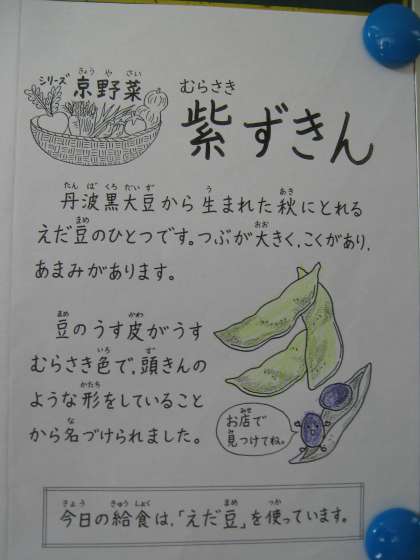 シリーズ 京野菜
紫ずきん
丹波黒大豆から生まれた秋にとれる
えだ豆のひとつです。つぶが大きく、こくがあり、
あまみがあります。
豆のうす皮がうす
むらさき色で、頭きんの
ような形をしていること
から名づけられました。
お店で
見つけてね。
今日の給食は、「えだ豆」を使っています。